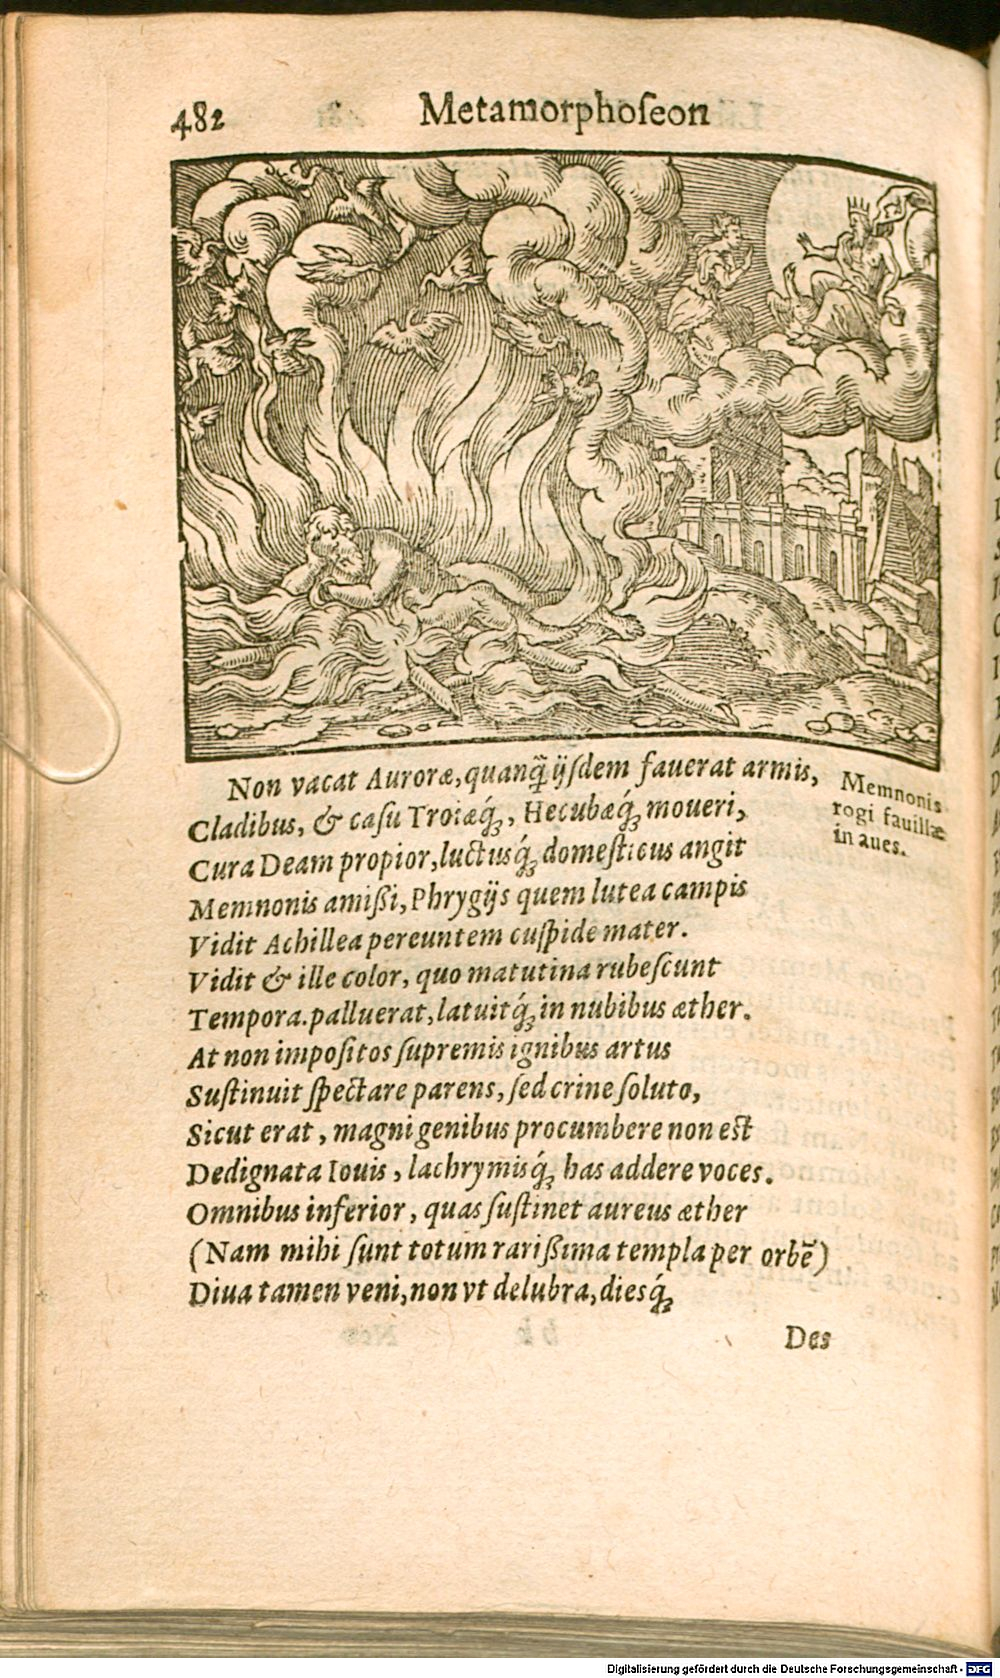 482 Metamorphoſeon
Non vacat Auroræ, quanq̃ ijſdem fauerat armis,
Cladibus, & caſu Troiæq́;, Hecubæq́; moueri,
Cura Deam propior, luctusq́; domeſticus angit
Memnonis amißi, Phrygijs quem lutea campis
Vidit Achillea pereuntem cuſpide mater.
Vidit & ille color, quo matutina rubeſcunt
Tempora. palluerat, latuitq́; in nubibus æther.
At non impoſitos ſupremis ignibus artus
Suſtinuit ſpectare parens, ſed crine ſoluto,
Sicut erat, magni genibus procumbere non eſt
Dedignata Iouis, lachrymisq́; has addere voces.
Omnibus inferior, quas ſuſtinet aureus æther
(Nam mihi ſunt totum rarißima templa per orbē)
Diua tamen veni, non vt delubra, diesq́;
Des
Memnonis
rogi fauillæ
in aues.
Digitalisierung gefördert durch die Deutsche Forschungsgemeinschaft - DFG